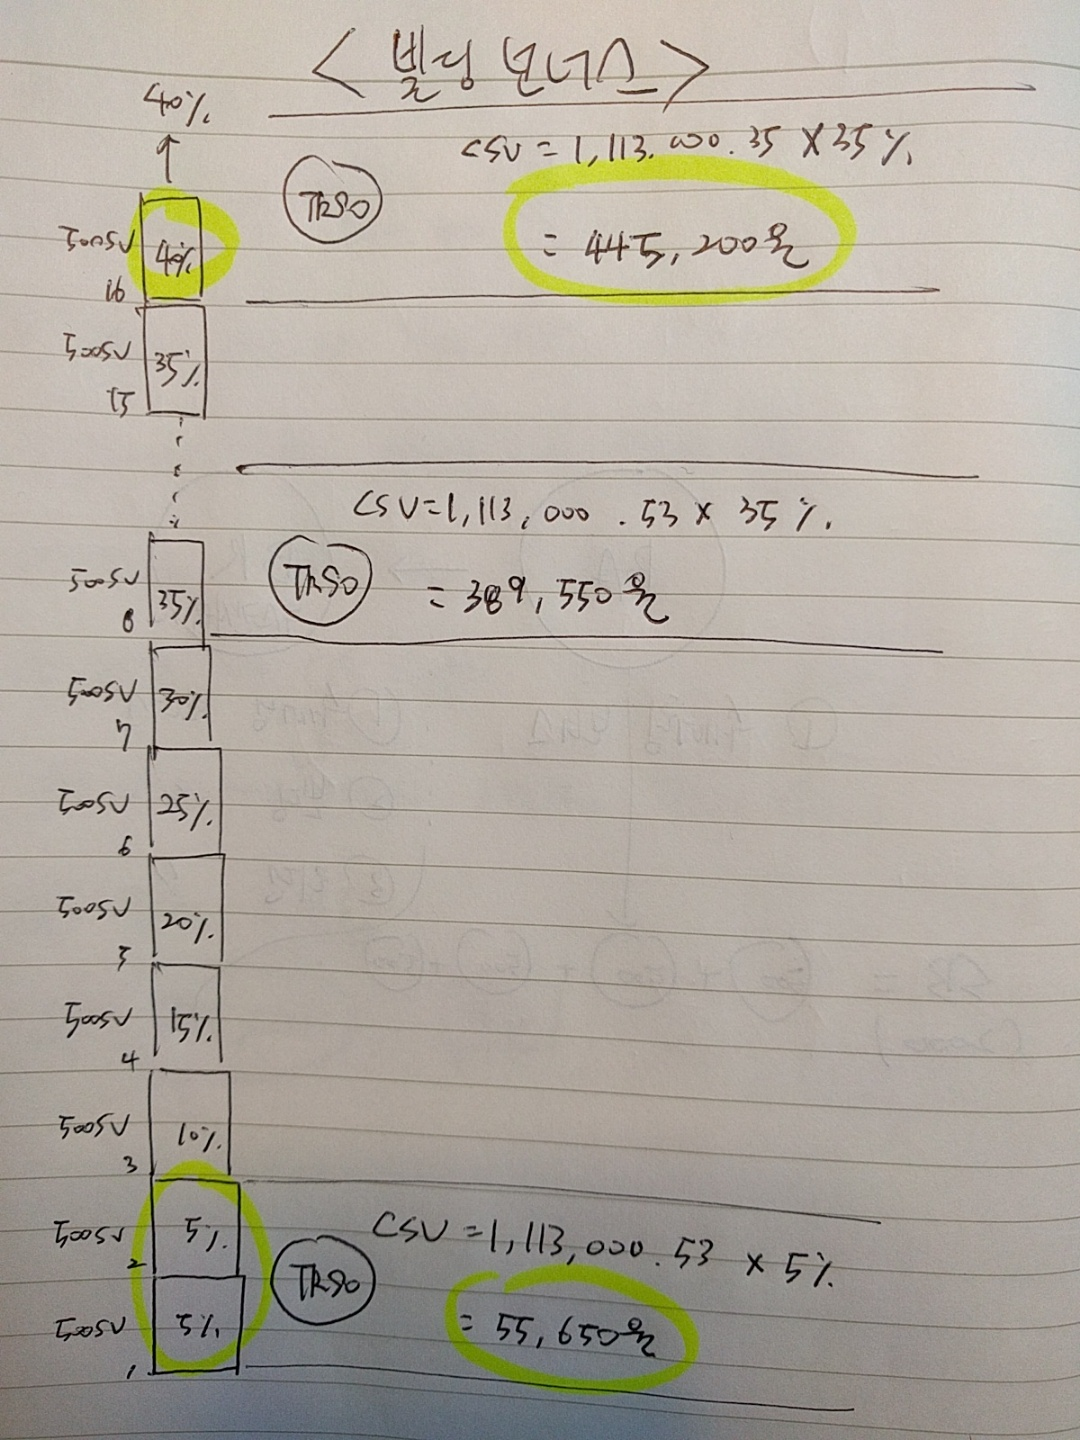 < 빌딩 보너스 >
40%
CSV = 1,113,000.35 X 35%
TRSO
500SV 40%
= 445,200원
16
500SV 35%
15
CSV=1,113,000.53 x 35%.
TRSO
500SV 35%
= 389,550원
8
500SV 30%
7
500SV 25%
6
500SV 20%
5
500SV 15%
4
500SV 10%
3
500SV 5%
CSV = 1,113,000.53 x 5%
2
TRSO
500SV 5%
= 55,650원
1